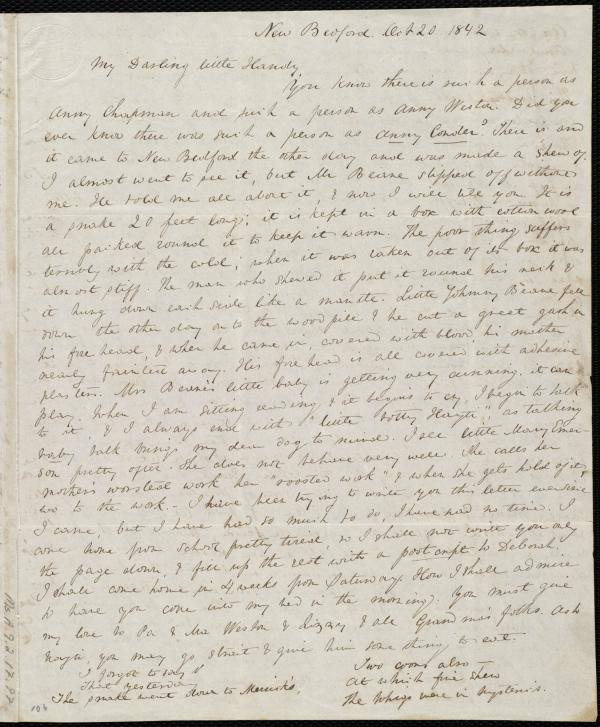 New Bedford. Oct 20 1842
My Darling little Handy
You know there is such a person as
Anny Chapman and such a person as Anny Weston. Did you
ever know there was such a person as Anny Conder? There is and
it came to New Bedford the other day and was made a shew of.
I almost went to see it, but Mr Beane slipped off without
me. He told me all about it, & now I will tell you. It is
a snake 20 feet long; it is kept in a box with cotton wool
all packed round it to keep it warm. The poor thing suffers
terribly with the cold; when it was taken out of its box it was
almost stiff. The man who shewed it put it round his neck &
it hung down each side like a mantle. Little Johnny Beane fell
down the other day on to the wood pile & he cut a great gash in
his fore head, & when he came in, covered with blood, his mother
nearly fainted away. His fore head is all covered with adhesive
plaster. Mrs Beane's little baby is getting very cunning, it can
play. When I am sitting reading, & it begins to cry, I begin to talk
to it, & I always end with "little totty" as talking
baby talk brings my dear dog to mind. I see little Mary Emer-
son pretty often. She does not behave very well. She calls her
mother's worsted work her "rooster work" & when she gets hold of it,
wo to the work. - I have been trying to write you this letter ever since
I came, but I have had so much to do, I have had no time. I
come home from school pretty tired, so I shall not write you only
the page down, & fill up the rest with a postcript to Deborah.
I shall come home in 4 weeks from Saturday. How I shall admire
to have you come into my bed in the morning. You must give
my love to Pa & Ma Weston & Lizzy & all Grandma's folks. As to
you may go strait & give him some thing to eat.
I forgot to say
That yesterday
The snake went down to Merrick's,
Two coons also
at which fine shew
the Whigs were in hysterics.